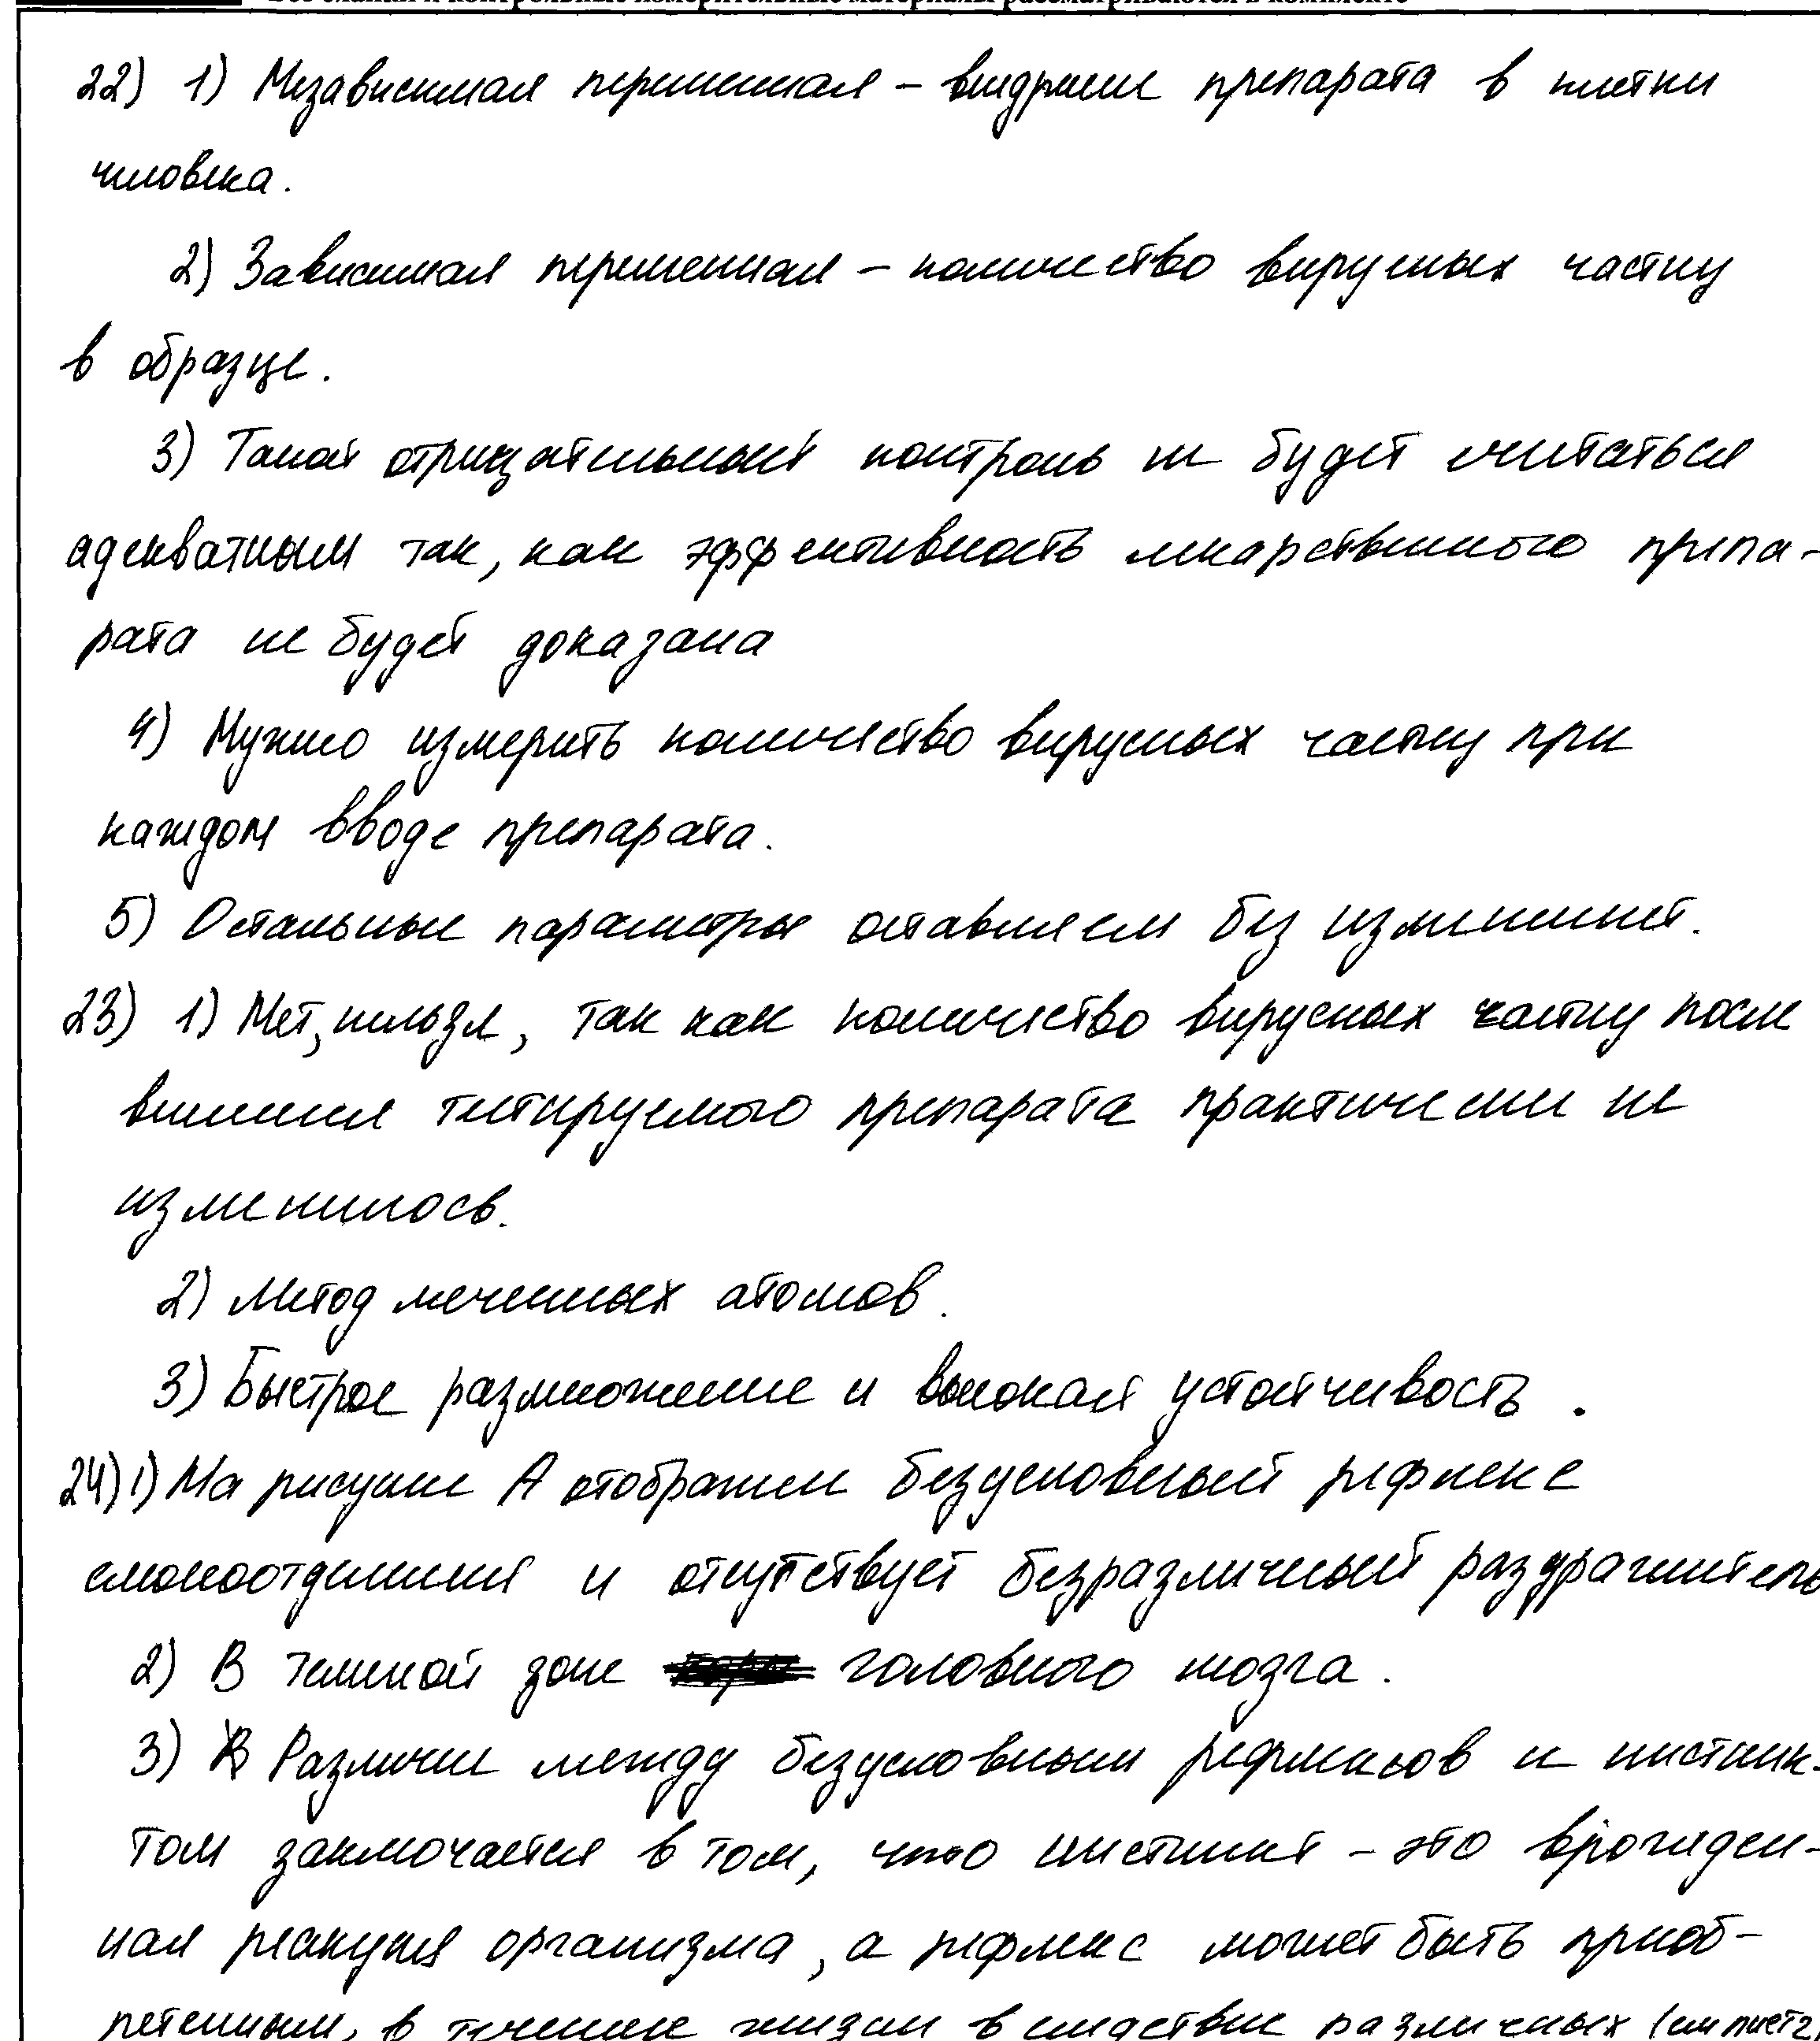 Все бланки и контрольные измерительные материалы рассматриваются в комплекте
22) 1) Независимая переменная – внедрение препарата в клетки
человека.
2) Зависимая переменная – количество вирусных частиц
в образце.
3) Такой отрицательный контроль не будет считаться
адекватным так, как эффективность лекарственного препа-
рата не будет доказана
4) Нужно измерить количество вирусных частиц при
каждом вводе препарата.
5) Остальные параметры оставляем без изменений.
23) 1) Нет, нельзя, так как количество вирусных частиц после
влияния тетируемого препарата практически не
изменилось.
2) Метод меченных атомов.
3) Быстрое размножение и высокая устойчивость.
24) 1) На рисунке А отображен безусловный рефлекс
слюноотделения и отсутствует безразличный раздражитель
2) В теменной зоне головного мозга.
3) Различие между безусловным рефлексов и инстинк-
том заключается в том, что инстинкт – это врожден-
ная реакция организма, а рефлекс может быть приоб-
ретенным, в течение жизни в следствие различных (см лист 2